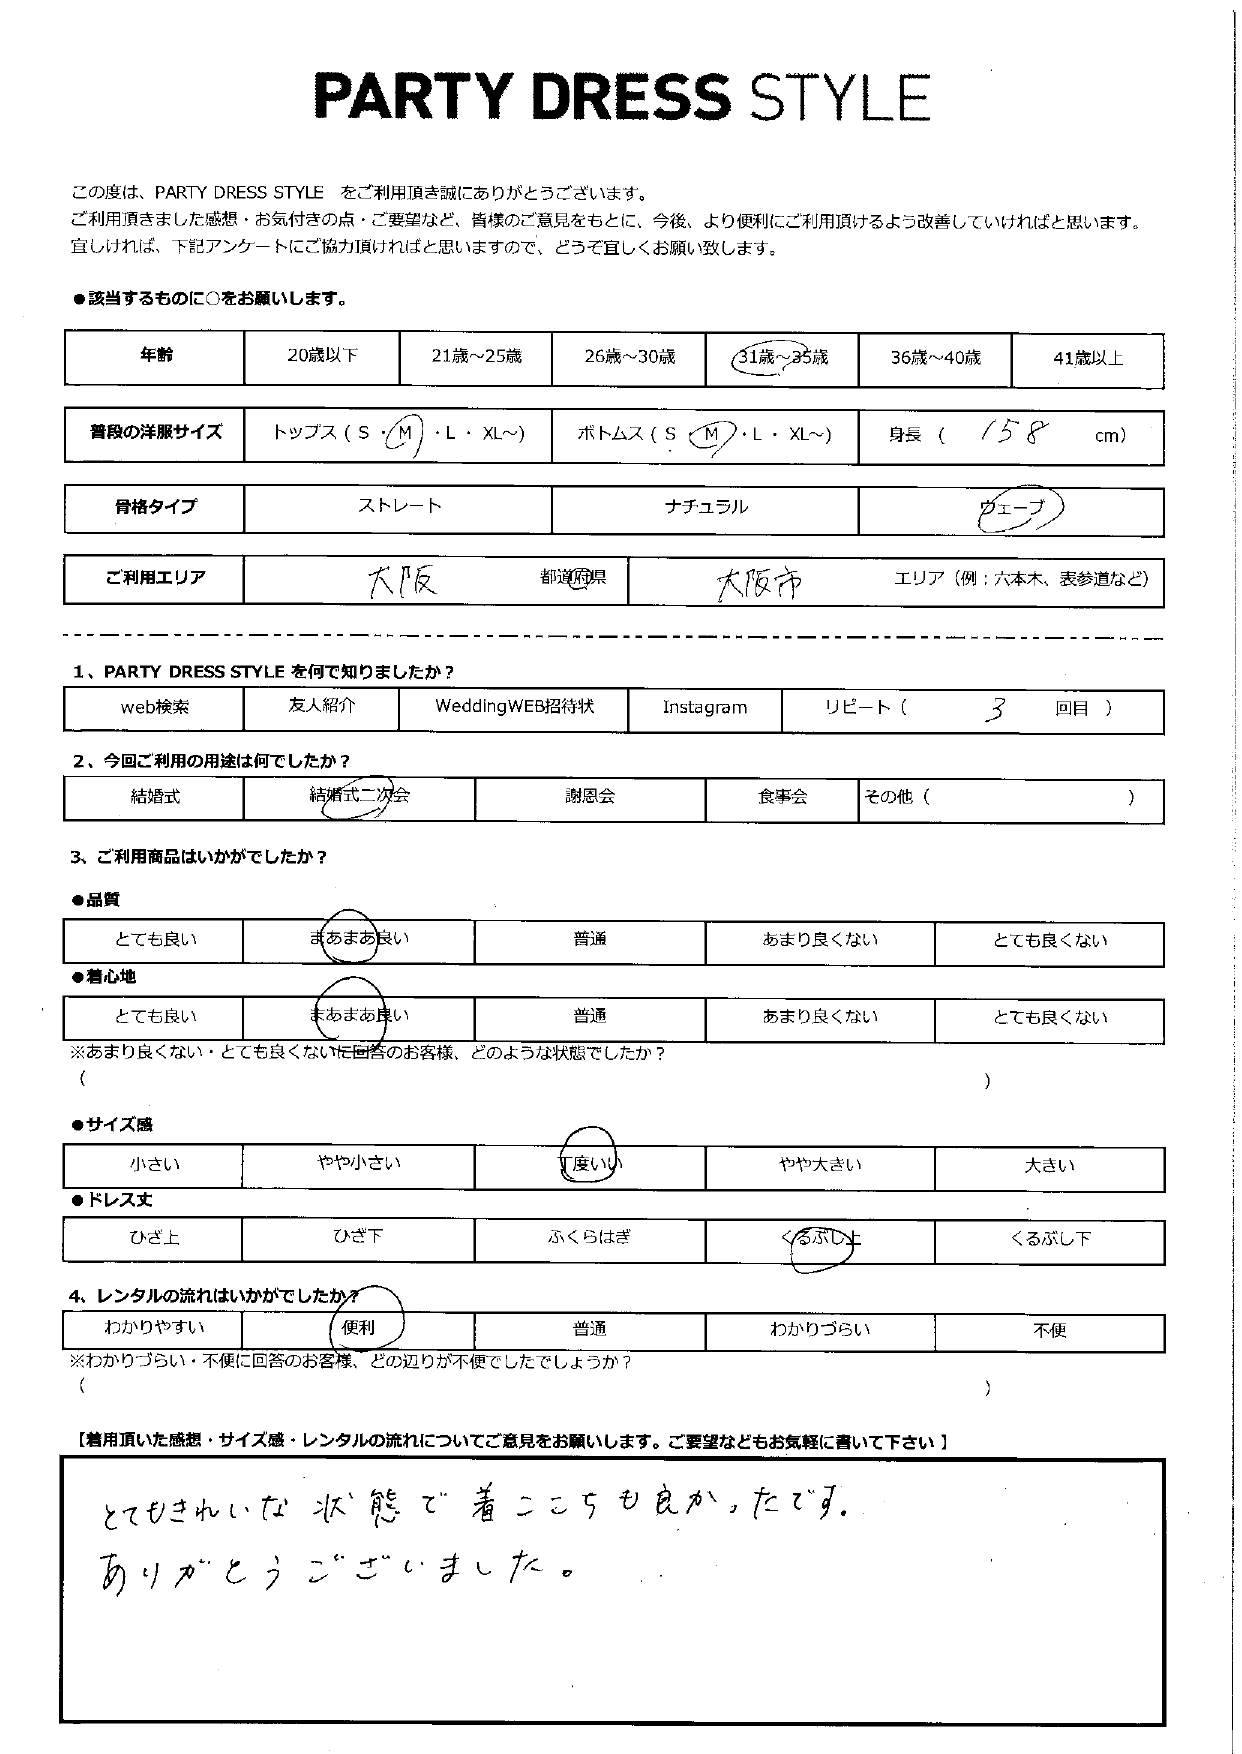 PARTY DRESS STYLE
この度は、PARTY DRESS STYLE をご利用頂き誠にありがとうございます。
ご利用頂きました感想・お気付きの点・ご要望など、皆様のご意見をもとに、今後、より便利にご利用頂けるよう改善していければと思います。
宜しければ、下記アンケートにご協力頂ければと思いますので、どうぞ宜しくお願い致します。
●該当するものに○をお願いします。
年齢 20歳以下 21歳～25歳 26歳～30歳 31歳～35歳 36歳～40歳 41歳以上
普段の洋服サイズ トップス（ S ・ M ・ L ・ XL～） ボトムス（ S ・ M ・ L ・ XL～） 身長 （ 158 cm）
骨格タイプ ストレート ナチュラル ウェーブ
ご利用エリア 大阪 都道府県 大阪市 エリア（例：六本木、表参道など）
1、PARTY DRESS STYLE を何で知りましたか？
web検索 友人紹介 WeddingWEB招待状 Instagram リピート（ 3 回目 ）
2、今回ご利用の用途は何でしたか？
結婚式 結婚式二次会 謝恩会 食事会 その他（ ）
3、ご利用商品はいかがでしたか？
●品質
とても良い まあまあ良い 普通 あまり良くない とても良くない
●着心地
とても良い まあまあ良い 普通 あまり良くない とても良くない
※あまり良くない・とても良くないに回答のお客様、どのような状態でしたか？
（ ）
●サイズ感
小さい やや小さい 丁度いい やや大きい 大きい
●ドレス丈
ひざ上 ひざ下 ふくらはぎ くるぶし上 くるぶし下
4、レンタルの流れはいかがでしたか？
わかりやすい 便利 普通 わかりづらい 不便
※わかりづらい・不便に回答のお客様、どの辺りが不便でしたでしょうか？
（ ）
【着用頂いた感想・サイズ感・レンタルの流れについてご意見をお願いします。ご要望などもお気軽に書いて下さい 】
とてもきれいな状態で着ここちも良かったです.
ありがとうございました。